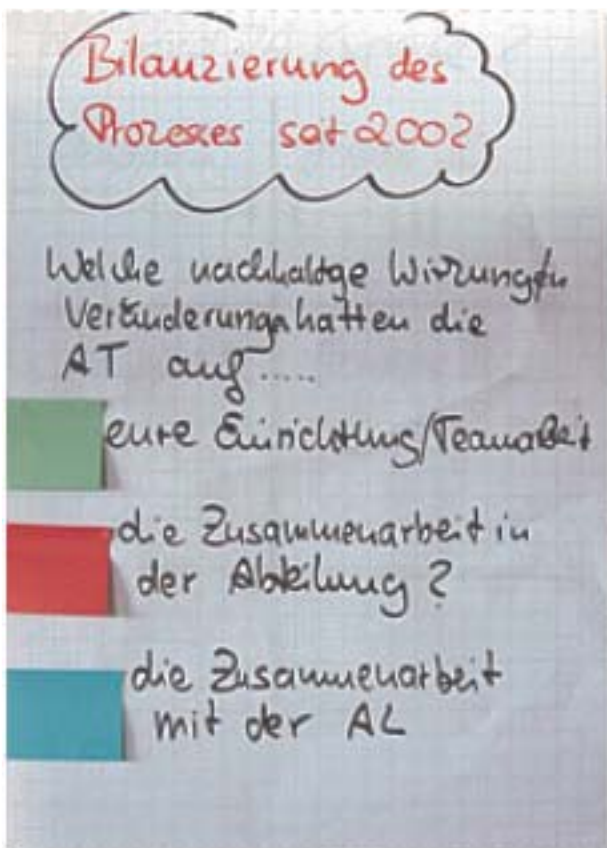 Bilanzierung des
Prozesses seit 2002
Welche nachhaltige Wirkungen/
Veränderungen hatten die
AT auf.....
eure Einrichtung/Teamarbeit
die Zusammenarbeit in
der Abteilung?
die Zusammenarbeit
mit der AL